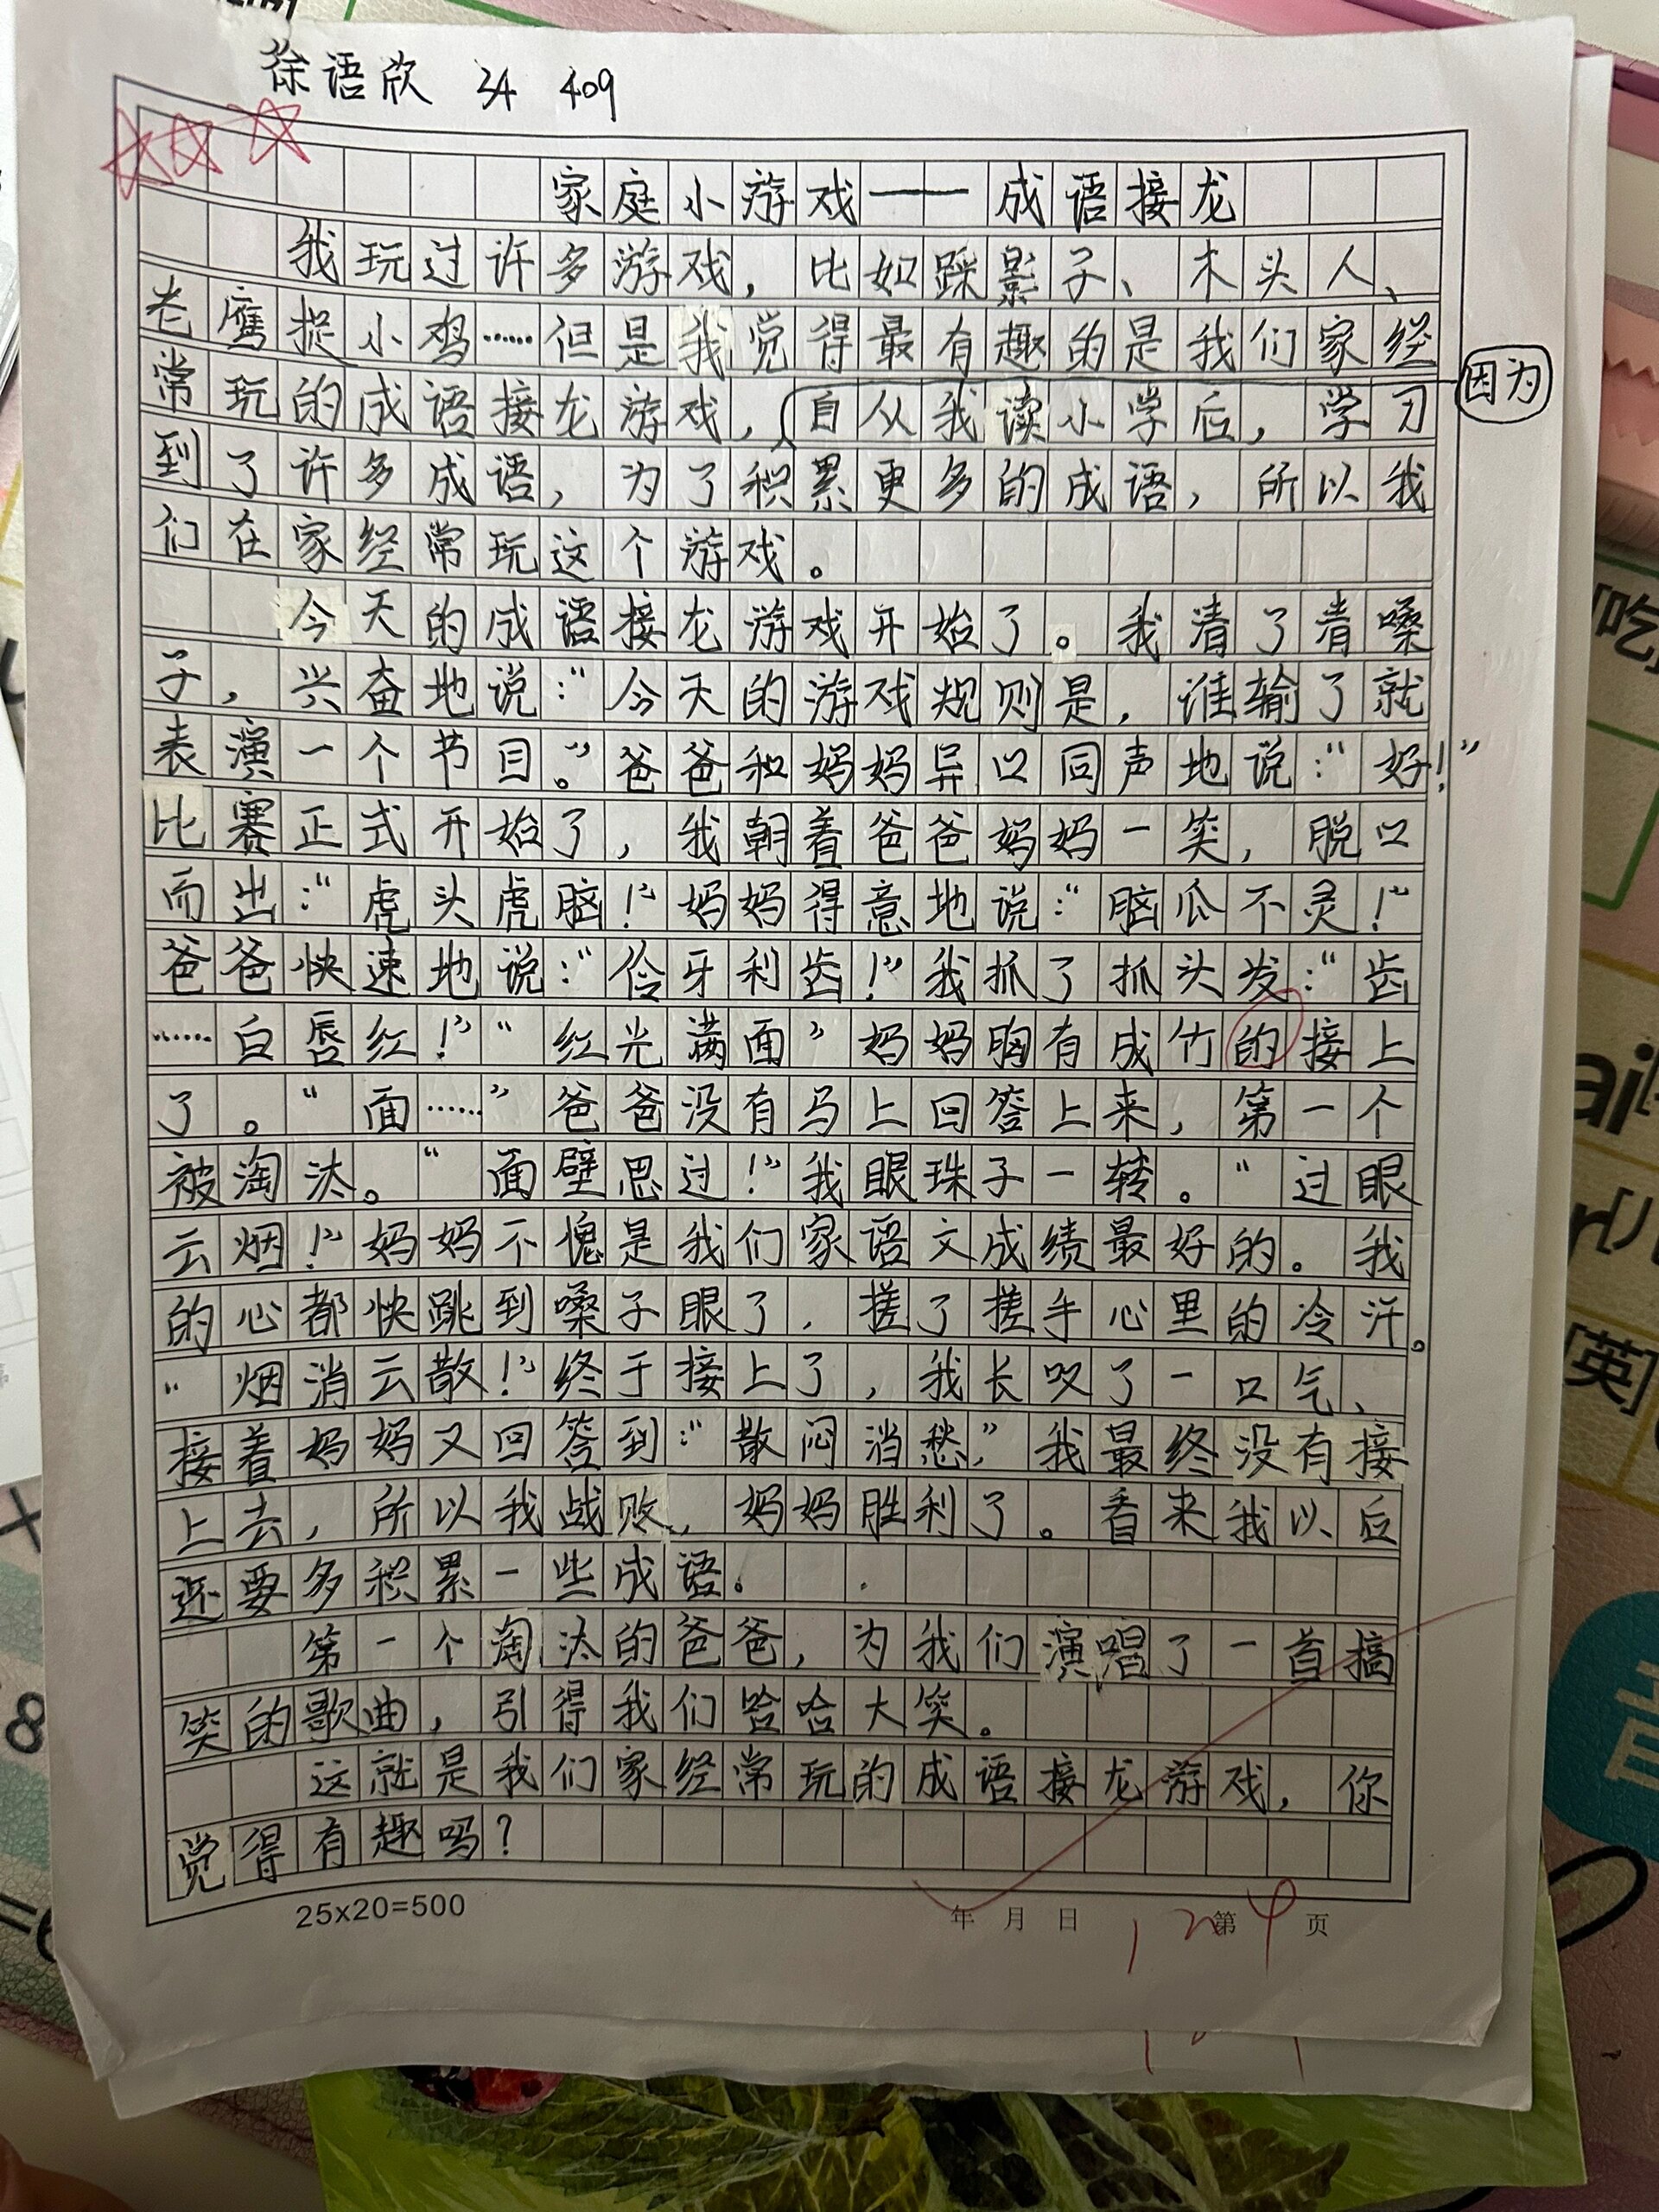 徐语欣 34 409
家庭小游戏——成语接龙
我玩过许多游戏，比如踩影子、木头人、
老鹰捉小鸡……但是我觉得最有趣的是我们家经
常玩的成语接龙游戏，自从我读小学后，学习
因为
到了许多成语，为了积累更多的成语，所以我
们在家经常玩这个游戏。
今天的成语接龙游戏开始了。我清了清嗓
子，兴奋地说：“今天的游戏规则是，谁输了就
表演一个节目。”爸爸和妈妈异口同声地说：“好！”
比赛正式开始了，我朝着爸爸妈妈一笑，脱口
而出：“虎头虎脑！”妈妈得意地说：“脑瓜不灵！”
爸爸快速地说：“伶牙利齿！”我抓了抓头发：“齿
……白唇红！”“红光满面”妈妈胸有成竹的接上
了。“面……”爸爸没有马上回答上来，第一个
被淘汰。“面壁思过！”我眼珠子一转。“过眼
云烟！”妈妈不愧是我们家语文成绩最好的。我
的心都快跳到嗓子眼了，搓了搓手心里的冷汗。
“烟消云散！”终于接上了，我长叹了一口气、
接着妈妈又回答到：“散闷消愁，”我最终没有接
上去，所以我战败，妈妈胜利了。看来我以后
还要多积累一些成语。
第一个淘汰的爸爸，为我们演唱了一首搞
笑的歌曲，引得我们哈哈大笑。
这就是我们家经常玩的成语接龙游戏，你
觉得有趣吗？
25x20=500
年 月 日 第 页
12 9
[吃]
[英]
8